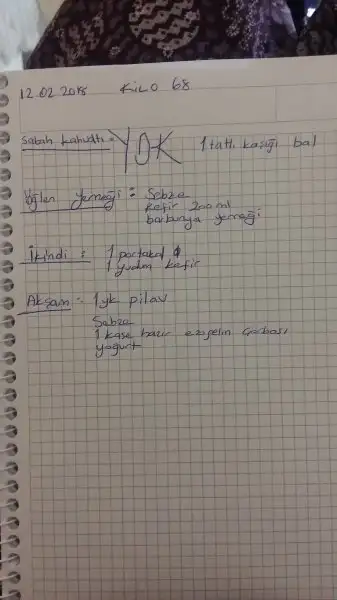 12.02.2018 KiLO 68
Sabah kahvaltı : YOK 1 tatlı kaşığı bal
Öğlen yemeği : Sebze
kefir 200 ml
barbunya yemeği
İkindi : 1 portakal
1 yudum kefir
Akşam : 1 yk pilav
Sebze
1 kase hazır ezogelin çorbası
yoğurt